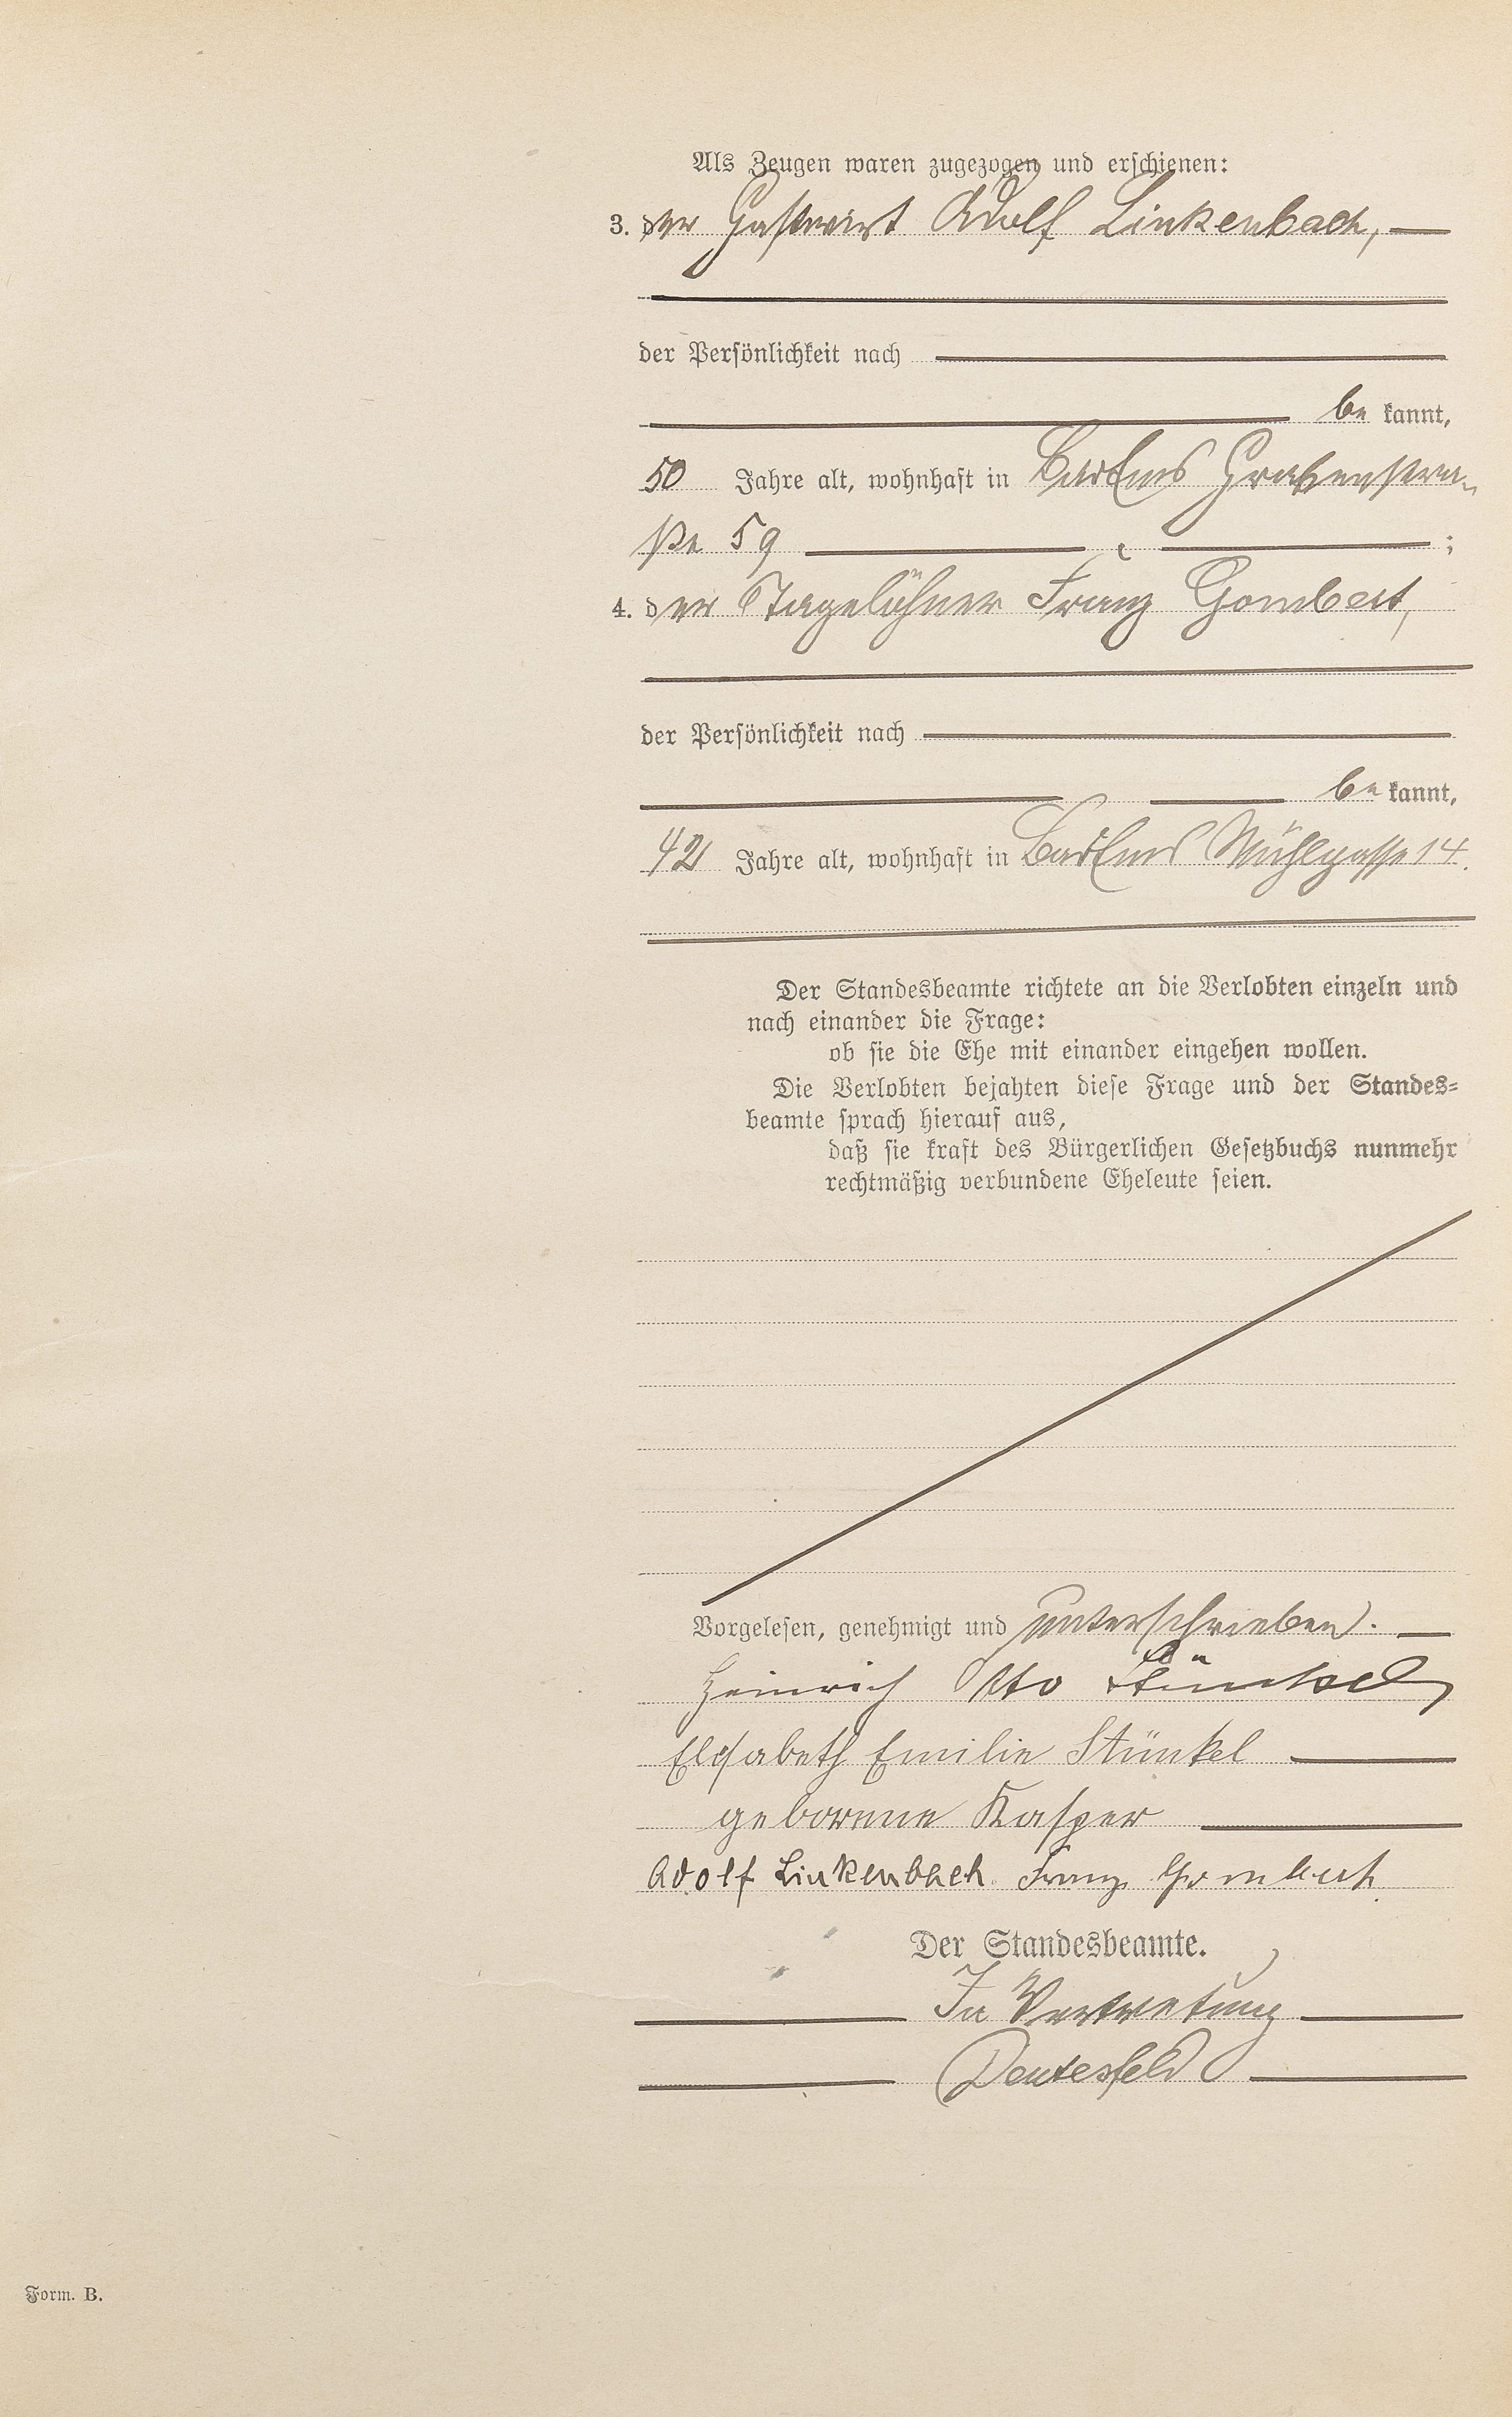 Als Zeugen waren zugezogen und erschienen:
3. der Gastwirt Adolf Linkenbach,
der Persönlichkeit nach
be kannt,
50 Jahre alt, wohnhaft in Bad Ems Grabenstra-
ße 59 ;
4. der Tagelöhner Franz Gombert,
der Persönlichkeit nach
be kannt,
42 Jahre alt, wohnhaft in Bad Ems Mühlgasse 14.
Der Standesbeamte richtete an die Verlobten einzeln und
nach einander die Frage:
ob sie die Ehe mit einander eingehen wollen.
Die Verlobten bejahten diese Frage und der Standes-
beamte sprach hierauf aus,
daß sie kraft des Bürgerlichen Gesetzbuchs nunmehr
rechtmäßig verbundene Eheleute seien.
Vorgelesen, genehmigt und unterschrieben.
Heinrich Otto Stünkel
Elisabeth Emilie Stünkel
geborene Kasper
Adolf Linkenbach Franz Gombert
Der Standesbeamte.
In Vertretung
Deutesfeld
Form. B.